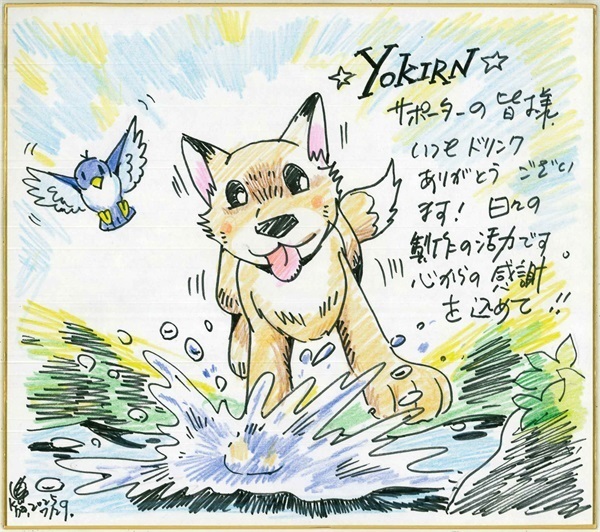 ☆YOKIRN☆
サポーターの皆様
いつもドリンク
ありがとう ござい
ます! 日々の
製作の活力です。
心からの感謝
を込めて!!
2025
7/29.